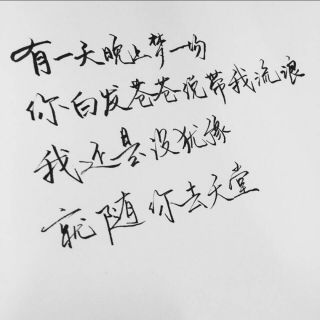 有一天晚上梦一场
你白发苍苍说带我流浪
我还是没犹豫
就随你去天堂